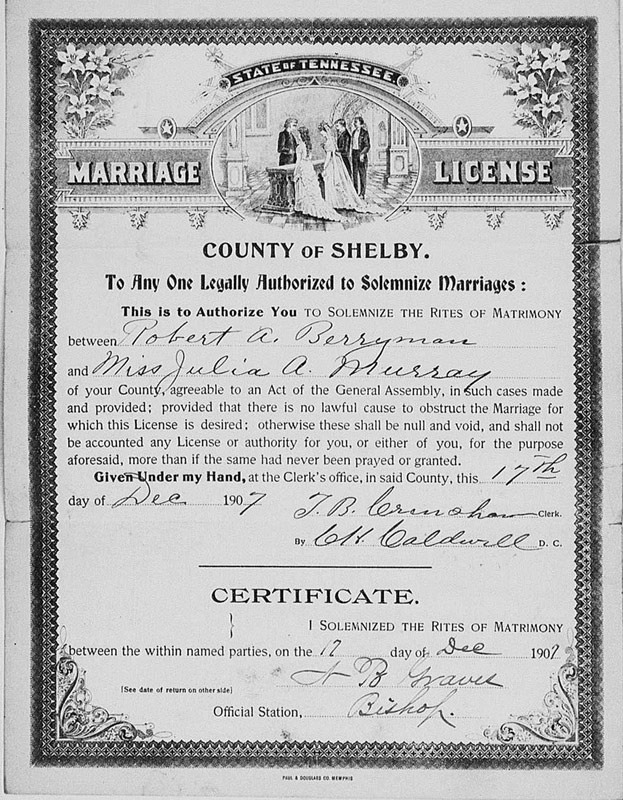 STATE OF TENNESSEE.
MARRIAGE LICENSE
COUNTY OF SHELBY.
To Any One Legally Authorized to Solemnize Marriages :
This is to Authorize You TO SOLEMNIZE THE RITES OF MATRIMONY
between Robert A. Berryman
and Miss Julia A. Murray
of your County, agreeable to an Act of the General Assembly, in such cases made
and provided; provided that there is no lawful cause to obstruct the Marriage for
which this License is desired; otherwise these shall be null and void, and shall not
be accounted any License or authority for you, or either of you, for the purpose
aforesaid, more than if the same had never been prayed or granted.
Given Under my Hand, at the Clerk's office, in said County, this 17th
day of Dec 1907 T. B. Crenshaw Clerk.
By CH. Caldwell D. C.
CERTIFICATE.
I SOLEMNIZED THE RITES OF MATRIMONY
between the within named parties, on the 17 day of Dec 1907
B Graves
[See date of return on other side]
Official Station, Bishop.
PAUL & DOUGLASS CO. MEMPHIS